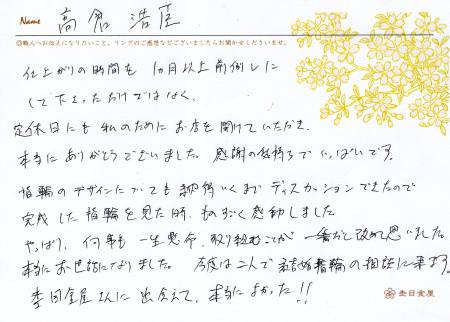 Name 高倉 浩臣
◎職人へお伝えになりたいこと、リングのご感想などございましたらお聞かせくださいませ。
仕上がりの時間を 1ヵ月以上前倒しに
して下さっただけではなく、
定休日にも 私のために お店を開けていただき、
本当に ありがとうございました。感謝の気持ちで いっぱいです。
指輪のデザインについても 納得いくまで ディスカッションできたので
完成した指輪を見た時、ものすごく感動しました
やっぱり、何事も 一生懸命、取り組むことが 一番だと改めて思いました。
本当にお世話になりました。 今度は二人で 結婚指輪の相談に来ます。
杢目金屋さんに 出会えて、本当によかった!!
杢目金屋